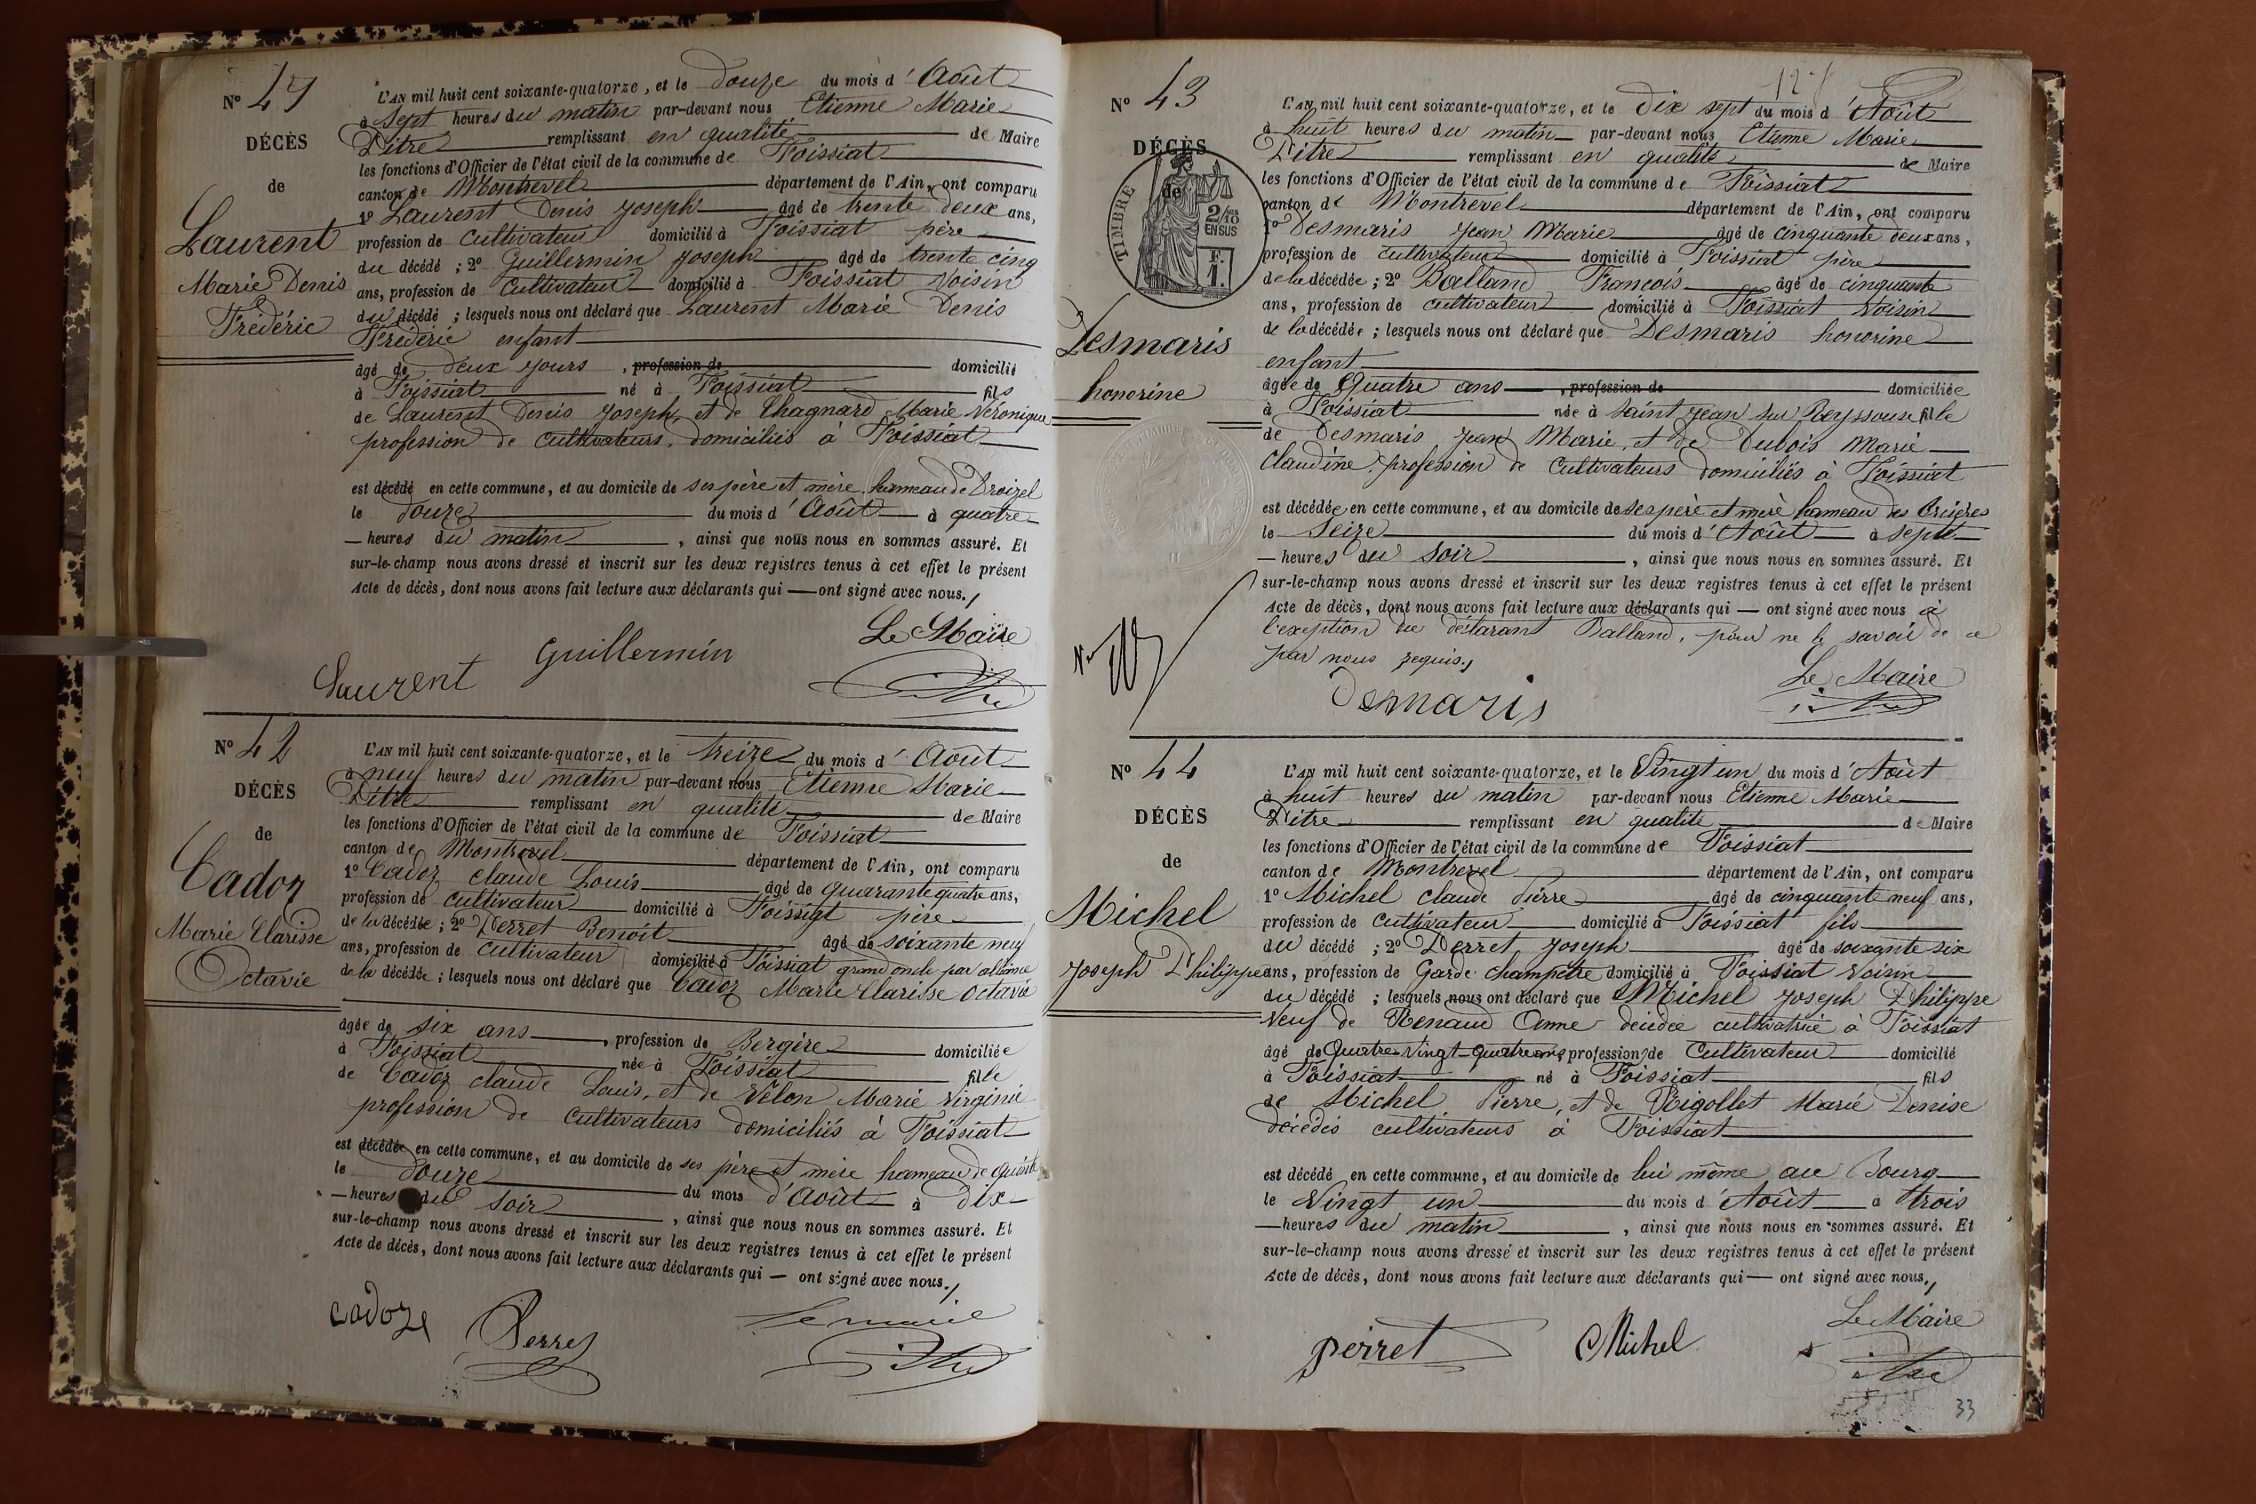 N° 41
DÉCÈS
de
Laurent
Marie Denis
Frédéric
L'AN mil huit cent soixante-quatorze, et le douze du mois d'Août
à sept heures du matin par-devant nous Etienne Marie
Pitre remplissant en qualité de Maire
les fonctions d'Officier de l'état civil de la commune de Foissiat
canton de Montrevel département de l'Ain, ont comparu
1° Laurent Denis Joseph âgé de trente deux ans,
profession de cultivateur domicilié à Foissiat père
du décédé ; 2° Guillermin Joseph âgé de trente cinq
ans, profession de cultivateur domicilié à Foissiat voisin
du décédé ; lesquels nous ont déclaré que Laurent Marie Denis
Frédéric enfant
âgé de deux jours , profession de domicilié
à Foissiat né à Foissiat fils
de Laurent Denis Joseph, et de Chagnard Marie Véronique
profession de cultivateurs, domiciliés à Foissiat
est décédé en cette commune, et au domicile de ses père et mère hameau de
le douze du mois d'Août à quatre
heures du matin , ainsi que nous nous en sommes assuré. Et
sur-le-champ nous avons dressé et inscrit sur les deux registres tenus à cet effet le présent
Acte de décès, dont nous avons fait lecture aux déclarants qui — ont signé avec nous./
Le Maire
Guillermin
Laurent
N° 42
DÉCÈS
de
Cadoz
Marie Clarisse
Octavie
L'AN mil huit cent soixante-quatorze, et le treize du mois d'Août
à neuf heures du matin par-devant nous Etienne Marie
Pitre remplissant en qualité de Maire
les fonctions d'Officier de l'état civil de la commune de Foissiat
canton de Montrevel département de l'Ain, ont comparu
1° Cadoz claude Louis âgé de quarante quatre ans,
profession de cultivateur domicilié à Foissiat père
de la décédée ; 2° Perret Benoit âgé de soixante neuf
ans, profession de cultivateur domicilié à Foissiat grand oncle par alliance
de la décédée ; lesquels nous ont déclaré que Cadoz Marie Clarisse Octavie
âgée de six ans , profession de Bergère domiciliée
à Foissiat née à Foissiat fille
de Cadoz claude Louis, et de Velon Marie Virginie
profession de cultivateurs domiciliés à Foissiat
est décédée en cette commune, et au domicile de ses père et mère hameau de
le douze du mois d'Août à dix
heures du soir , ainsi que nous nous en sommes assuré. Et
sur-le-champ nous avons dressé et inscrit sur les deux registres tenus à cet effet le présent
Acte de décès, dont nous avons fait lecture aux déclarants qui — ont signé avec nous./
Le maire
cadoze
Perret
N° 43
DÉCÈS
de
TIMBRE
2/10
EN SUS
F.
1.
Desmaris
honorine
L'AN mil huit cent soixante-quatorze, et le dix sept du mois d'Août
à huit heures du matin par-devant nous Etienne Marie
Pitre remplissant en qualité de Maire
les fonctions d'Officier de l'état civil de la commune de Foissiat
canton de Montrevel département de l'Ain, ont comparu
1° Desmaris Jean Marie âgé de cinquante deux ans,
profession de cultivateur domicilié à Foissiat père
de la décédée ; 2° Balland François âgé de cinquante
ans, profession de cultivateur domicilié à Foissiat voisin
de la décédée ; lesquels nous ont déclaré que Desmaris honorine
enfant
âgée de Quatre ans , profession de domiciliée
à Foissiat née à Saint Jean sur Reyssouse fille
de Desmaris Jean Marie, et de Dubois Marie
Claudine, profession de cultivateurs domiciliés à Foissiat
est décédée en cette commune, et au domicile de ses père et mère hameau des
le seize du mois d'Août à sept
heures du soir , ainsi que nous nous en sommes assuré. Et
sur-le-champ nous avons dressé et inscrit sur les deux registres tenus à cet effet le présent
Acte de décès, dont nous avons fait lecture aux déclarants qui — ont signé avec nous à
l'exeption du déclarant Balland, pour ne le savoir de ce
par nous requis./
Le Maire
Desmaris
N° 44
DÉCÈS
de
Michel
Joseph Philippe
L'AN mil huit cent soixante-quatorze, et le Vingt un du mois d'Août
à huit heures du matin par-devant nous Etienne Marie
Pitre remplissant en qualité de Maire
les fonctions d'Officier de l'état civil de la commune de Foissiat
canton de Montrevel département de l'Ain, ont comparu
1° Michel claude Pierre âgé de cinquante neuf ans,
profession de cultivateur domicilié à Foissiat fils
du décédé ; 2° Perret Joseph âgé de soixante six
ans, profession de Garde champêtre domicilié à Foissiat voisin
du décédé ; lesquels nous ont déclaré que Michel Joseph Philippe
veuf de Renaud Anne décédée cultivatrice à Foissiat
âgé de Quatre-Vingt-Quatre ans, profession de cultivateur domicilié
à Foissiat né à Foissiat fils
de Michel Pierre, et de Rigollet Marie Denise
décédés cultivateurs à Foissiat
est décédé en cette commune, et au domicile de lui même au Bourg
le Vingt un du mois d'Août à trois
heures du matin , ainsi que nous nous en sommes assuré. Et
sur-le-champ nous avons dressé et inscrit sur les deux registres tenus à cet effet le présent
Acte de décès, dont nous avons fait lecture aux déclarants qui — ont signé avec nous./
Le Maire
perret
Michel
33